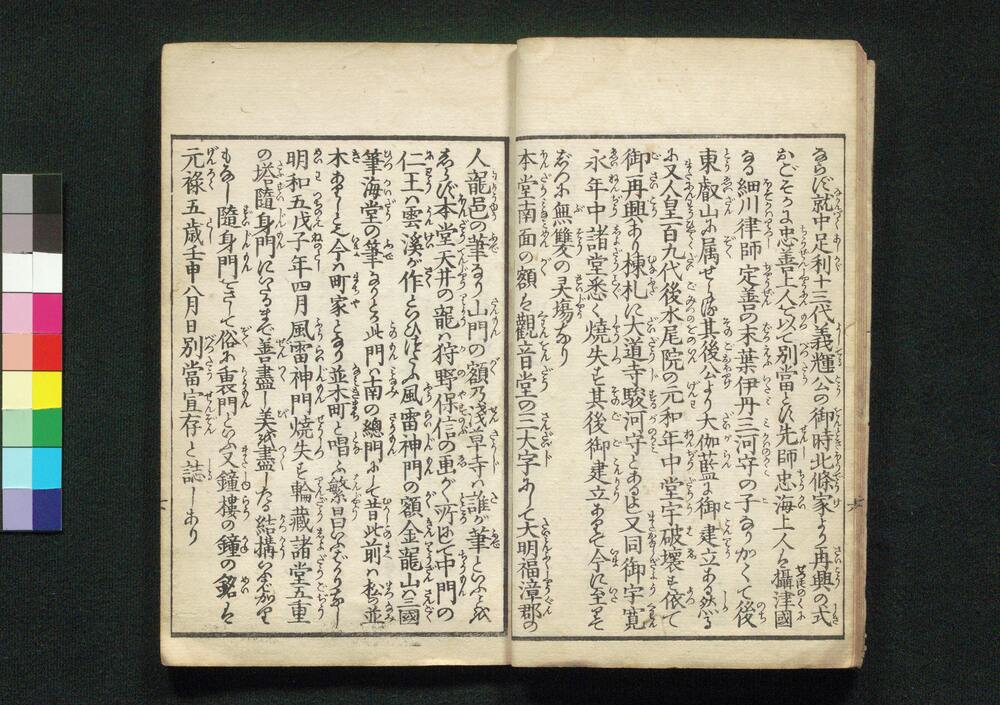 ならびに就中足利十三代義輝公の御時北條家より再興の式
おごそかに忠善上人を以て別當とす先師忠海上人ハ攝津國
なる細川律師定善の末葉伊丹三河守の子なりかくて後
東叡山に属せらる其後公より大伽藍に御建立ある然るに
又人皇百九代後水尾院の元和年中堂宇破壊し依て
御再興あり棟札に大道寺駿河守とあるよし又同御宇寛
永年中諸堂悉く焼失す其後御建立ありて今に至りて
ぢつに無雙の灵場なり
本堂南面の額ハ觀音堂の三大字にして大明福漳郡の
人龍邑の筆なり山門の額乃浅草寺ハ誰が筆といふことを
しらず本堂天井の龍ハ狩野保信の画が所にして中門の
仁王ハ雲溪が作といひつたふ風雷神門の額金龍山ハ三國
筆海堂の筆なりとぞ此門ハ南の總門にて昔此前ハ松の並
木ありしと今ハ町家となり並木町と唱ふ繁昌いふばかりなし
明和五戊子年四月風雷神門焼失す輪蔵諸堂五重
の塔隨身門にいたるまで善盡し美盡したる結構いふばかり
もなし隨身門をさして俗に重門といふ又鐘樓の鐘の銘に
元禄五歳壬申八月日別當宣存と誌しあり